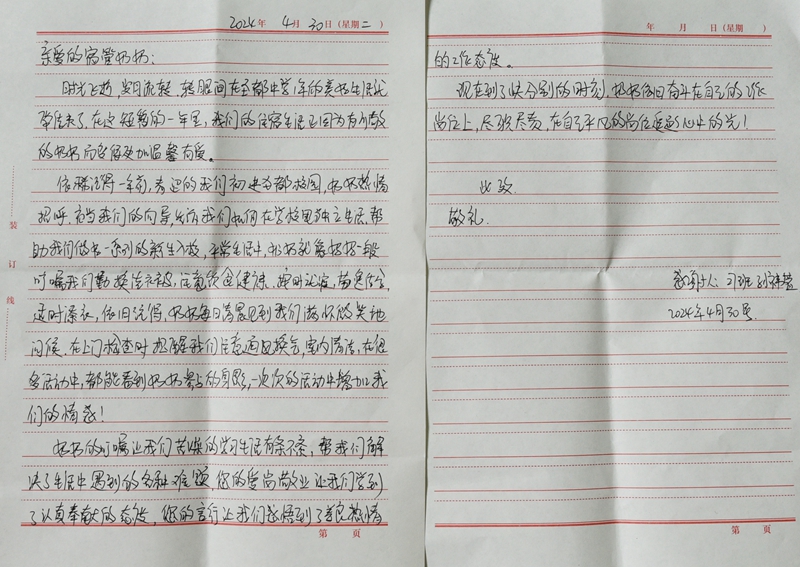 2024年 4月 30日(星期二)
亲爱的宿管妈妈:
时光飞逝,岁月流转,转眼间在至都中学1年的美好生活就
要结束了,在这短暂的一年里,我们的住宿生活正因为有
的妈妈而变得更加温馨有爱。
依稀记得一年前,青涩的我们初进都校园,妈妈热情
招呼,充当我们的向导,告诉我们如何在学校里独立生活,帮
助我们做着一系列的新生入校,平常生活中,妈妈就像妈妈一般
叮嘱我们勤换洗衣被,注意饮食健康,按时就寝,
适时添衣,依旧记得,妈妈每日清晨见到我们满怀的笑地
问候,在上门检查时提醒我们注意通风换气,室内清洁,在很
多活动中,都能看到妈妈的身影,一次次的活动中增加了我
们的情感!
妈妈的叮嘱让我们苦燥的学习生活有条不紊,帮我们解
决了生活中遇到的各种难题,您的爱岗敬业让我们学到
了认真奉献的态度,您的言行让我们感悟到了善良热情
第 页
年 月 日(星期 )
的工作态度。
现在到了快分别的时刻,妈妈依旧奋斗在自己的工作
岗位上,尽职尽责,在自己平凡的岗位追逐心中的光!
此致
敬礼
2024年4月30号
第 页
装
订
线